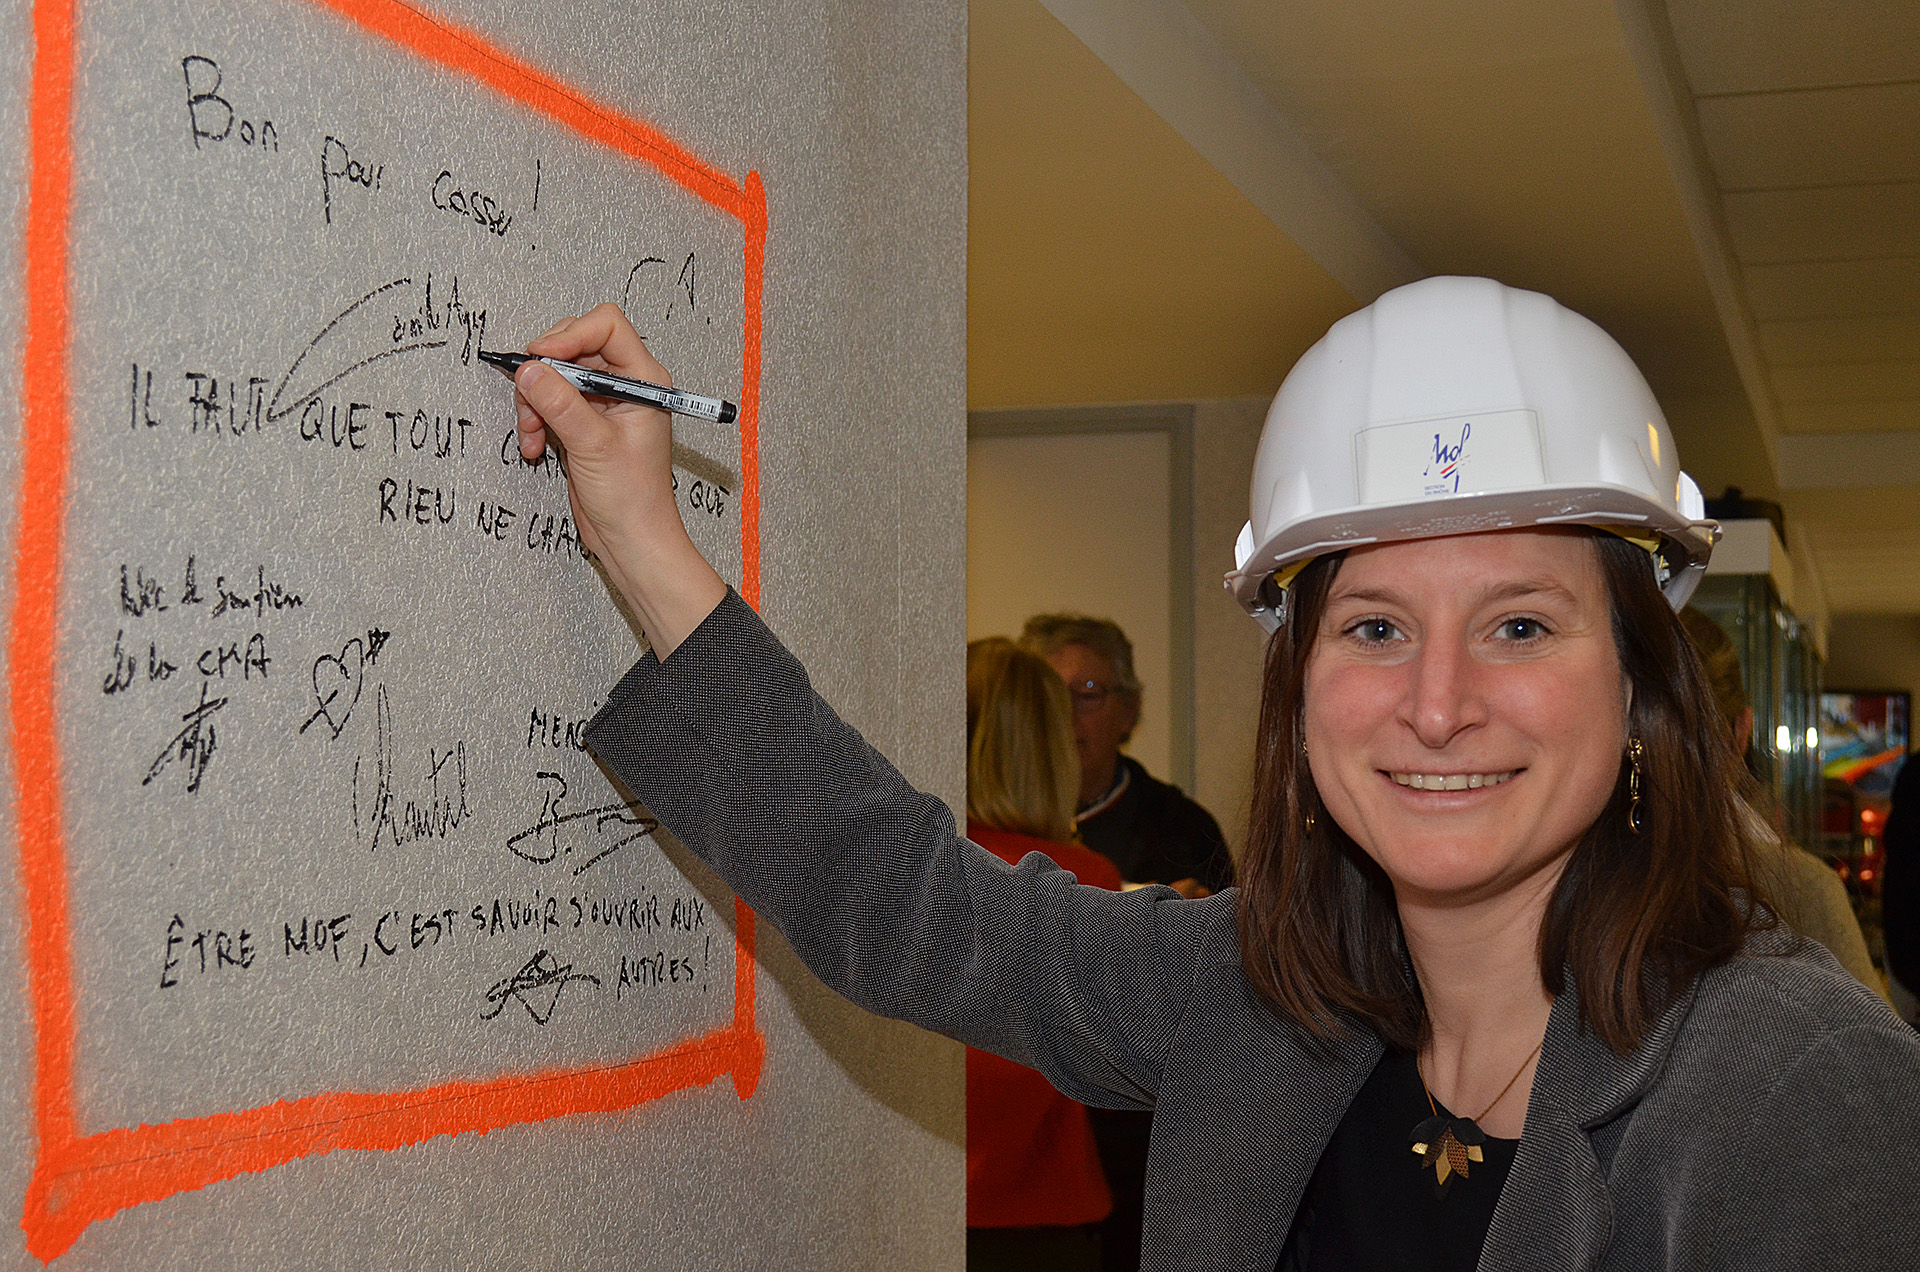 Bon pour casse !
C.A.
IL FAUT QUE TOUT CHAN QUE
RIEN NE CHAN
Avec le soutien
de la CMA
Chantal
MERCI
B.
ÊTRE MOF, C'EST SAVOIR S'OUVRIR AUX
AUTRES !
Mof
SECTION
DU RHÔNE